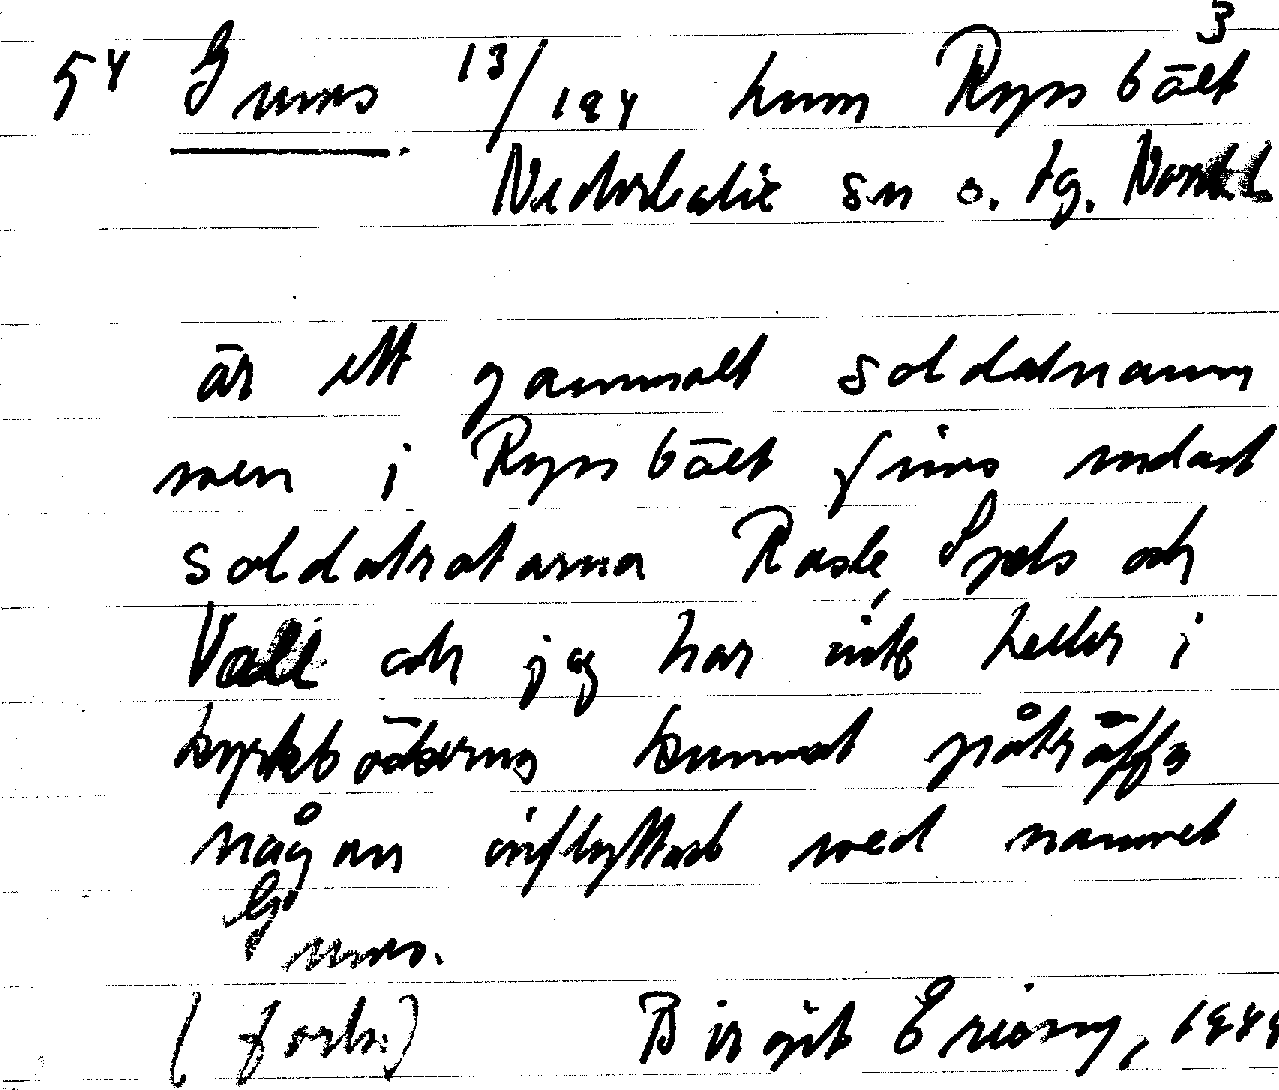 3
54 Gunns 13/184 hum Ryssbält
Nederkalix sn o. tg. Norrb.
är ett gammalt soldatnamn
men i Ryssbält finns endast
soldatrotarna Rask, Spets och
Vall och jag har inte heller i
kyrkböckerna kunnat påträffa
någon inflyttad med namnet
Gunns.
(forts.) Birgit Ericson, 1949